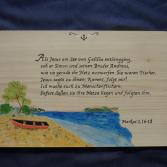 Als Jesus am See von Galiläa entlangging,
sah er Simon und seinen Bruder Andreas,
wie sie gerade ihr Netz auswarfen. Sie waren Fischer.
Jesus sagte zu ihnen: Kommt, folgt mir!
Ich mache euch zu Menschenfischern.
Sofort ließen sie ihre Netze liegen und folgten ihm.
Markus 1,16-18